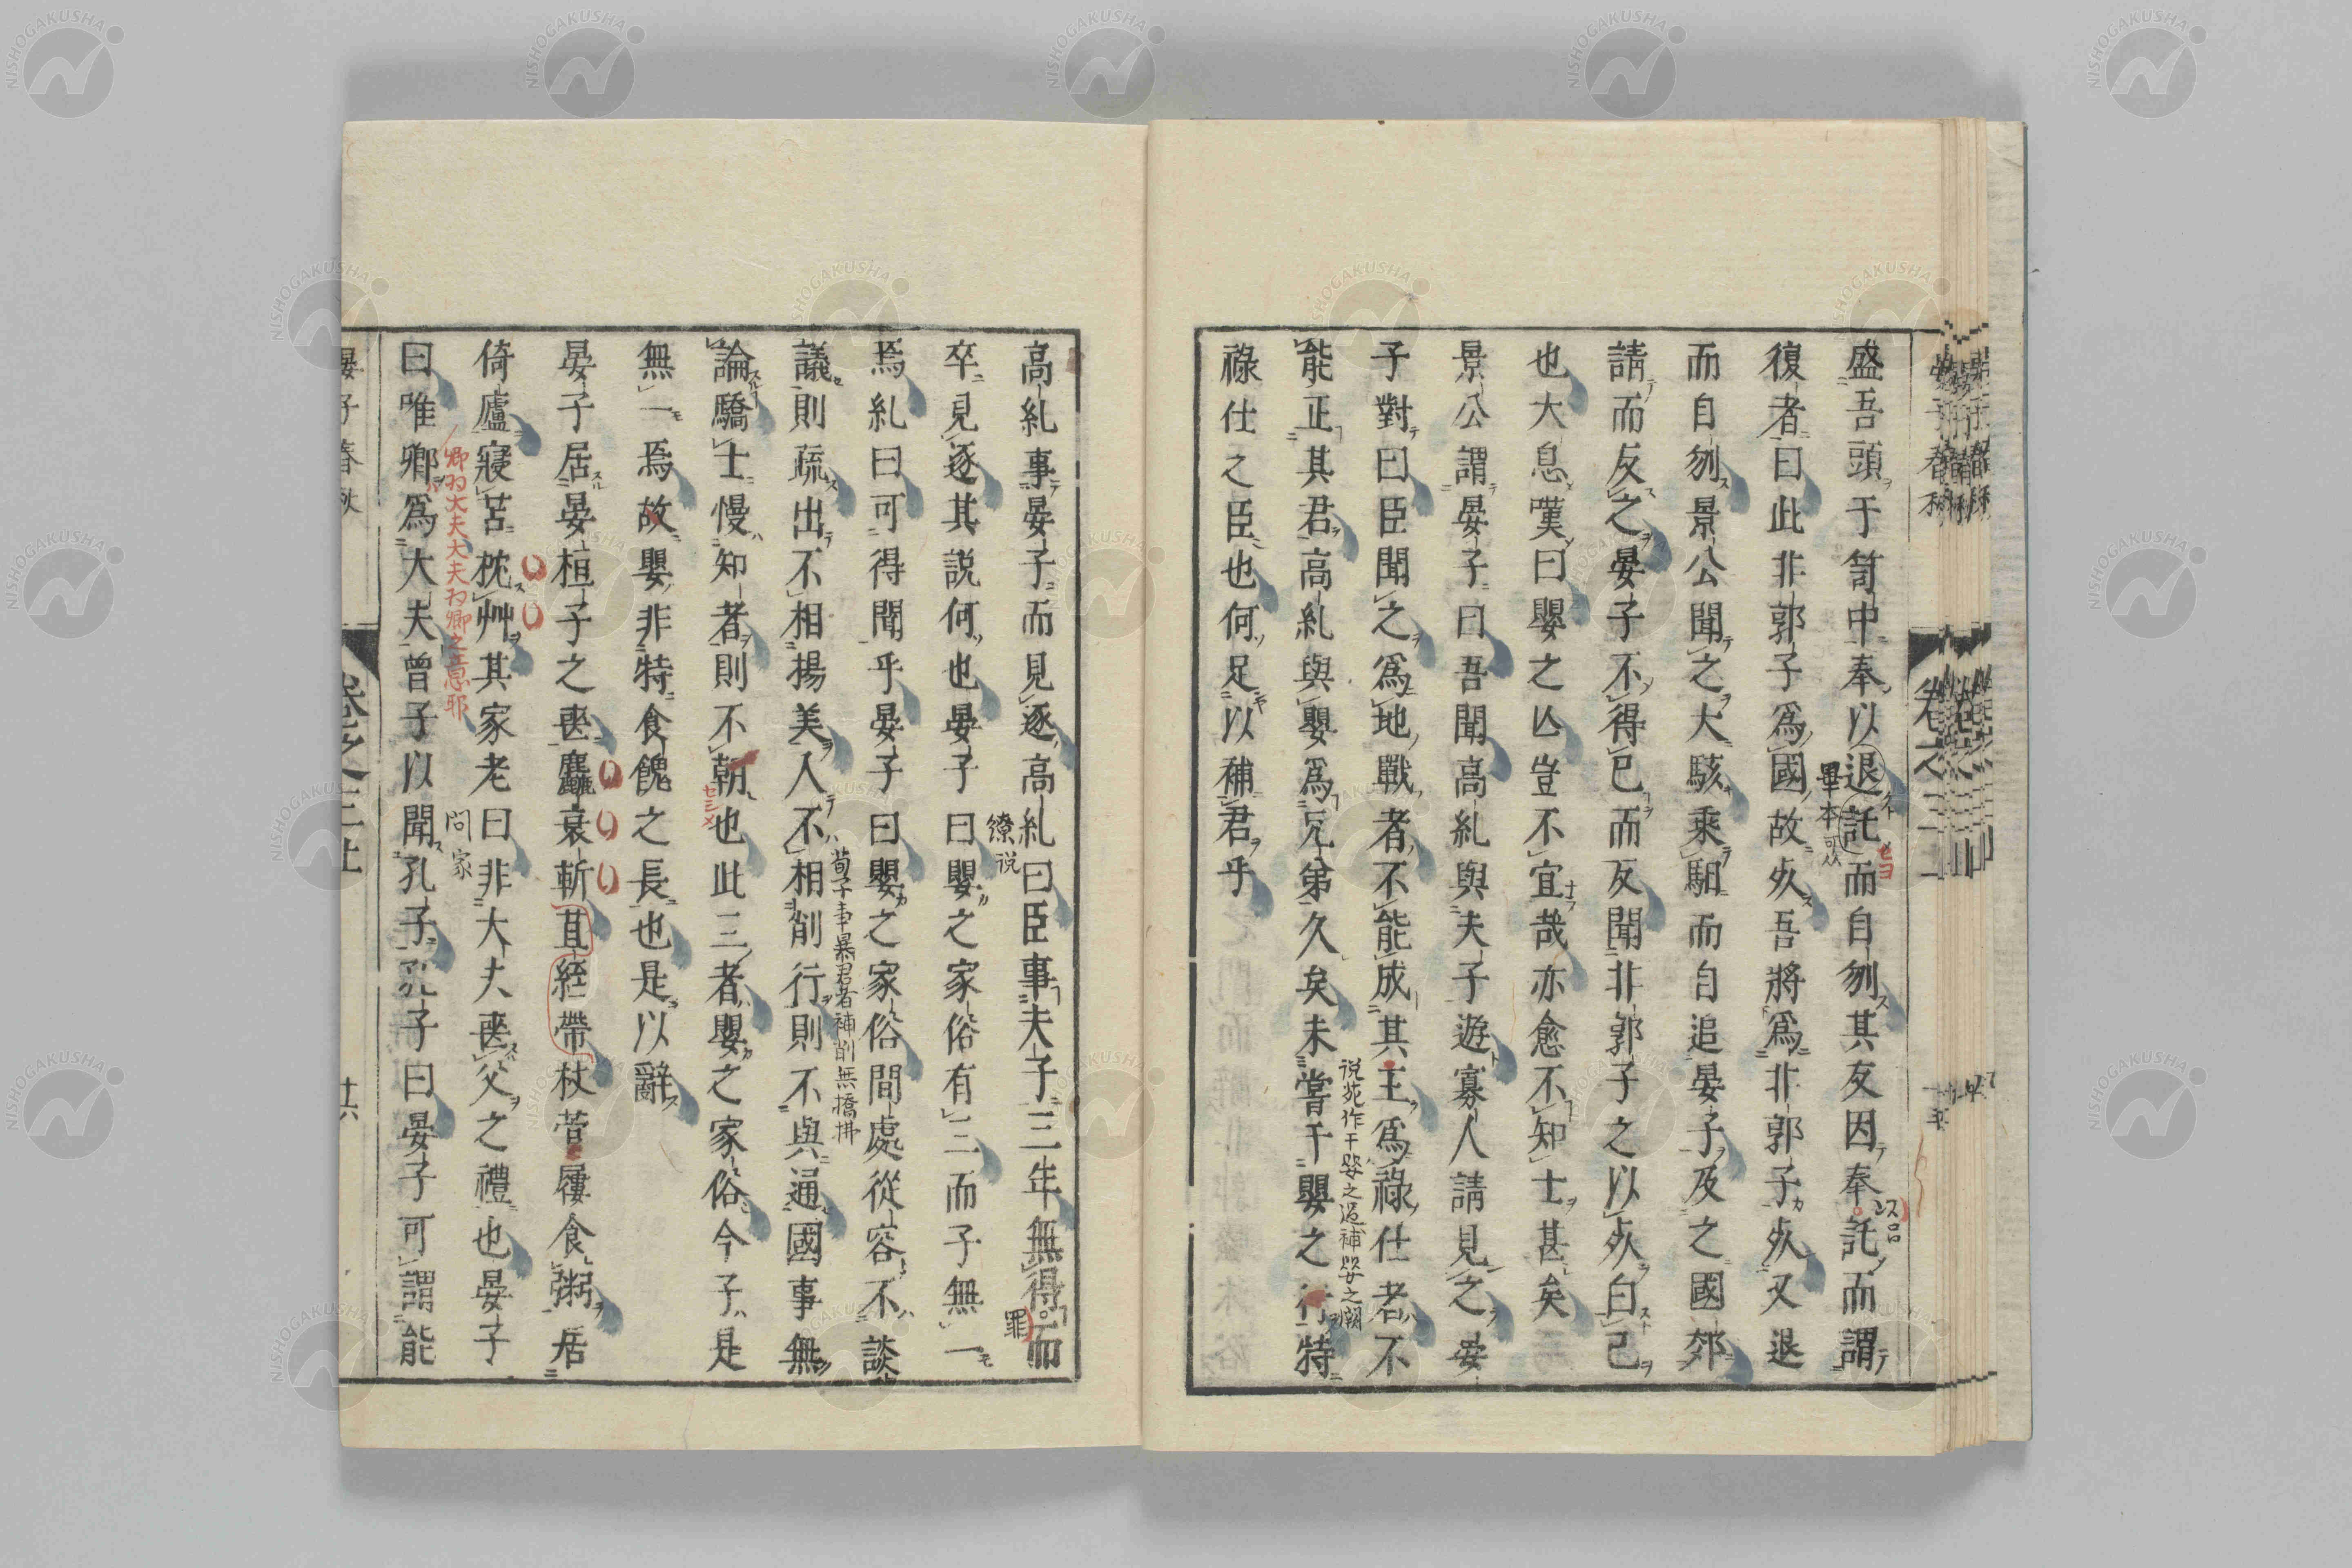 盛吾頭于笥中奉以退託而自刎其友因奉託而謂
畢本可从
復者曰此非郭子爲國故𣦸吾將爲非郭子𣦸又退
而自刎景公聞之大駭乘馹而自追晏子及之國郊
請而反之晏子不得已而反聞非郭子之以𣦸白己
也大息嘆曰嬰之亾豈不宜哉亦愈不知士甚矣
景公謂晏子曰吾聞高糺與夫子遊寡人請見之晏
子對曰臣聞之爲地戰者不能成其王爲祿仕者不
説苑作干嬰之過補嬰之闕
能正其君高糺與嬰爲兄弟久矣未嘗干嬰之行特
祿仕之臣也何足以補君乎
高糺事晏子而見逐高糺曰臣事夫子三年無得而
繚説
罪
卒見逐其説何也晏子曰嬰之家俗有三而子無一
焉糺曰可得聞乎晏子曰嬰之家俗間處從容不談
荀子事暴君者補削無撟拂
議則疏出不相揚美人不相削行則不與通國事無
論驕士慢知者則不朝也此三者嬰之家俗今子是
無一焉故嬰非特食餽之長也是以辭
晏子居晏桓子之䘮麤衰斬苴絰帶杖菅屨食粥居
倚廬寢苫枕艸其家老曰非大夫䘮父之禮也晏子
問家
卿為大夫大夫為卿之意耶
曰唯卿爲大夫曾子以聞孔子孔子曰晏子可謂能
晏子春秋
卷之三上
十六